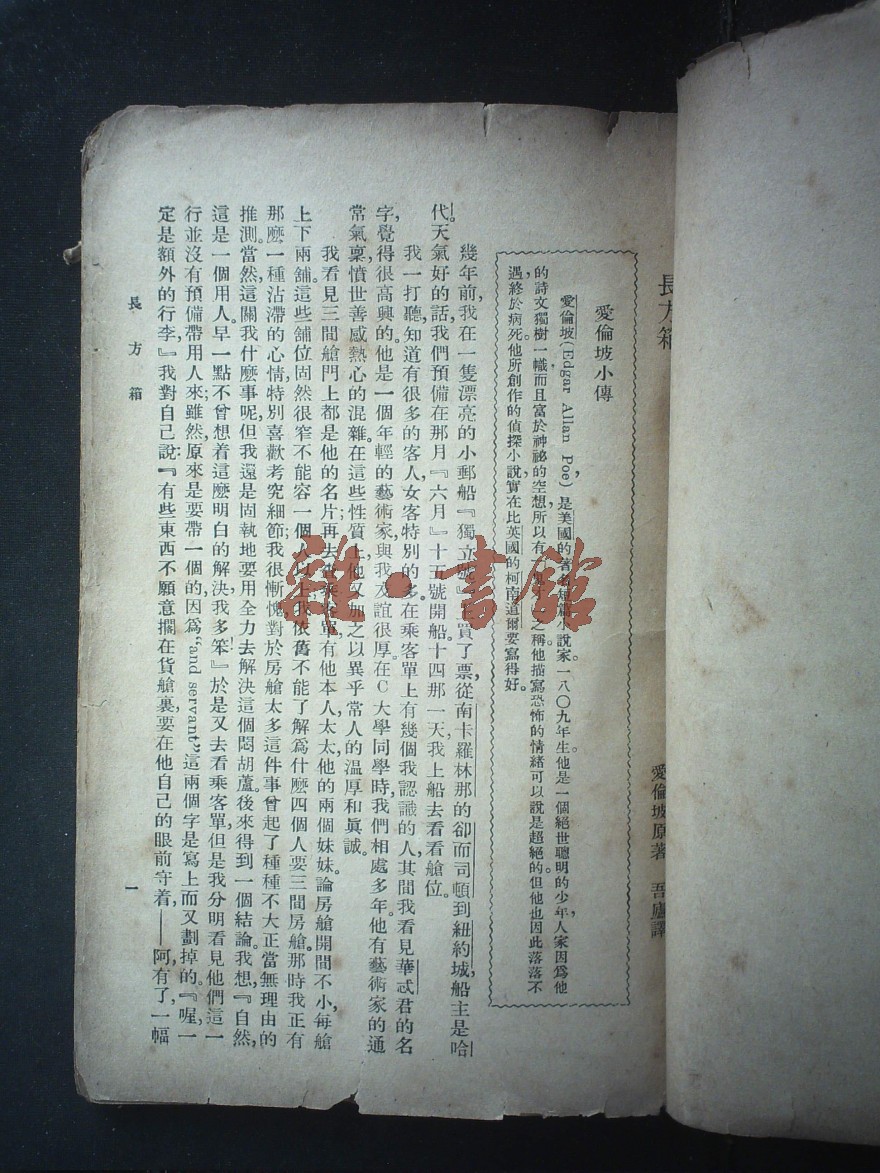 長方箱
愛倫坡原著　吾廬譯
愛倫坡小傳
愛倫坡(Edgar Allan Poe)是美國的著名短篇小說家。一八〇九年生。他是一個絕世聰明的少年人家因爲他
的詩文獨樹一幟，而且富於神祕的空想，所以有 之稱。他描寫恐怖的情緒可以說是超絕的。但他也因此落落不
遇，終於病死。他所創作的偵探小說實在比英國的柯南道爾要寫得好。
幾年前，我在一隻漂亮的小郵船『獨立號』 買了票，從南卡羅林那的卻而司頓到紐約城，船主是哈
代。天氣好的話，我們預備在那月『六月』十五號開船。十四那一天，我上船去看看艙位。
我一打聽，知道有很多的客人，女客特別的多。在乘客單上有幾個我認識的人，其間我看見華忒君的名
字，覺得很高興的。他是一個年輕的藝術家，與我友誼很厚。在C大學同學時，我們相處多年。他有藝術家的通
常氣稟，憤世善感熱心的混雜。在這些性質上，他又加之以異乎常人的溫厚和眞誠。
我看見三間艙門上都是他的名片，再去查乘客單，有他本人，太太，他的兩個妹妹。論房艙開間不小，每艙
上下兩舖。這些舖位固然很窄不能容一個人以上，我依舊不能了解爲什麽四個人要三間房艙。那時我正有
那麽一種沾滯的心情，特別喜歡考究細節；我很慚愧，對於房艙太多這件事曾起了種種不大正當無理由的
推測。當然，這關我什麽事呢，但我還是固執地要用全力去解決這個悶葫蘆。後來得到一個結論。我想，『自然，
這是一個用人。早一點不曾想着這麽明白的解決，我多笨！』於是又去看乘客單，但是我分明看見他們這一
行並沒有預備帶用人來；雖然，原來是要帶一個的，因爲“and servant”這兩個字是寫上而又劃掉的。『喔，一
定是額外的行李。』我對自己說：『有些東西不願意擱在貨艙裏，要在他自己的眼前守着，——阿，有了，一幅
長方箱
一
雜·書館